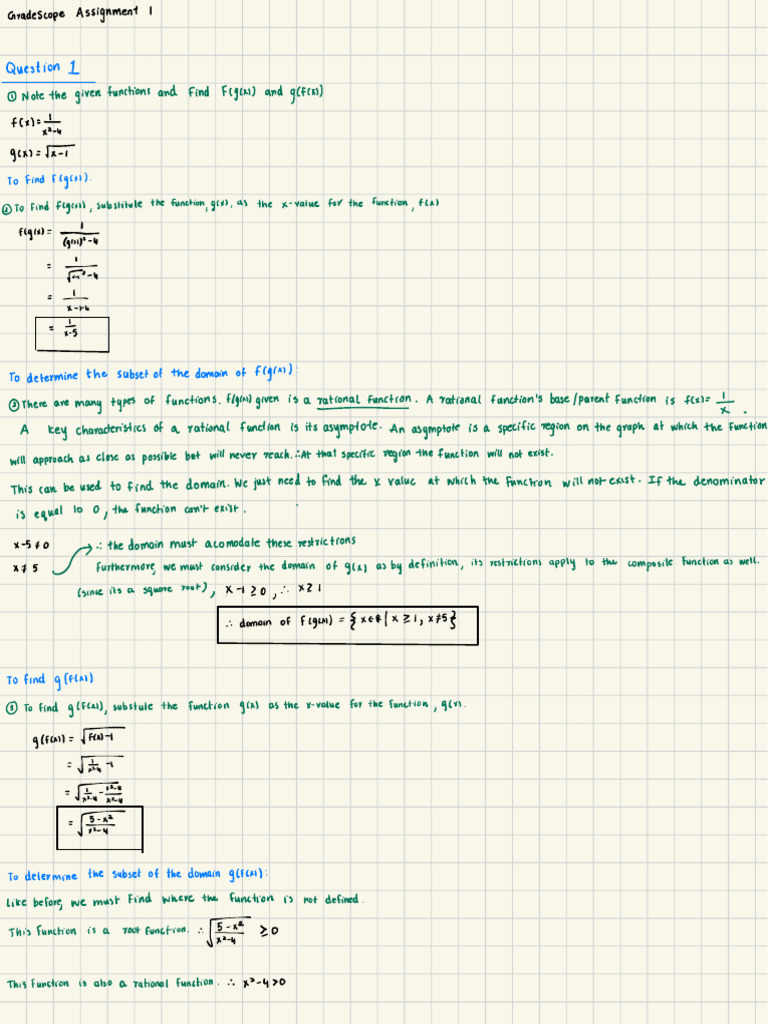 GradeScope Assignment 1
Question 1
① Note the given functions and find f(g(x)) and g(f(x))
f(x) = 1/(x²-4)
g(x) = √(x-1)
To find f(g(x)).
② To find f(g(x)), substitute the function, g(x), as the x-value for the function, f(x)
f(g(x) = 1/((g(x))²-4)
= 1/(√(x-1)²-4)
= 1/(x-1-4)
= 1/(x-5)
To determine the subset of the domain of f(g(x)):
③ There are many types of functions. f(g(x)) given is a rational function. A rational function's base/parent function is f(x) = 1/x.
A key characteristics of a rational function is its asymptote. An asymptote is a specific region on the graph at which the function
will approach as close as possible but will never reach. ∴ At that specific region the function will not exist.
This can be used to find the domain. We just need to find the x value at which the function will not exist. If the denominator
is equal to 0, the function can't exist.
x-5≠0 ∴ the domain must acomodate these restrictions
x≠5 Furthermore, we must consider the domain of g(x) as by definition, its restrictions apply to the composite function as well.
(since its a square root), x-1≥0, ∴ x≥1
∴ domain of f(g(x)) = {x∈ℝ | x≥1, x≠5}
To find g(f(x))
③ To find g(f(x)), substute the function g(x) as the x-value for the function, g(x).
g(f(x)) = √(f(x)-1)
= √(1/(x²-4) -1)
= √(1/(x²-4) - (x²-4)/(x²-4))
= √((5-x²)/(x²-4))
To determine the subset of the domain g(f(x)):
Like before, we must find where the function is not defined.
This function is a root function. ∴ √((5-x²)/(x²-4)) ≥0
This function is also a rational function. ∴ x²-4>0